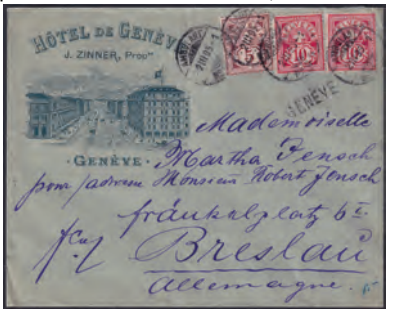 HÔTEL DE GENÈVE
J. ZINNER, Propr
GENÈVE
HELVETIA
5
10
10
GENÈVE
Mademoiselle
Martha Jensch
pour adresse Monsieur Robert Jensch
fränkelplatz 6 I
Breslau
Allemagne.